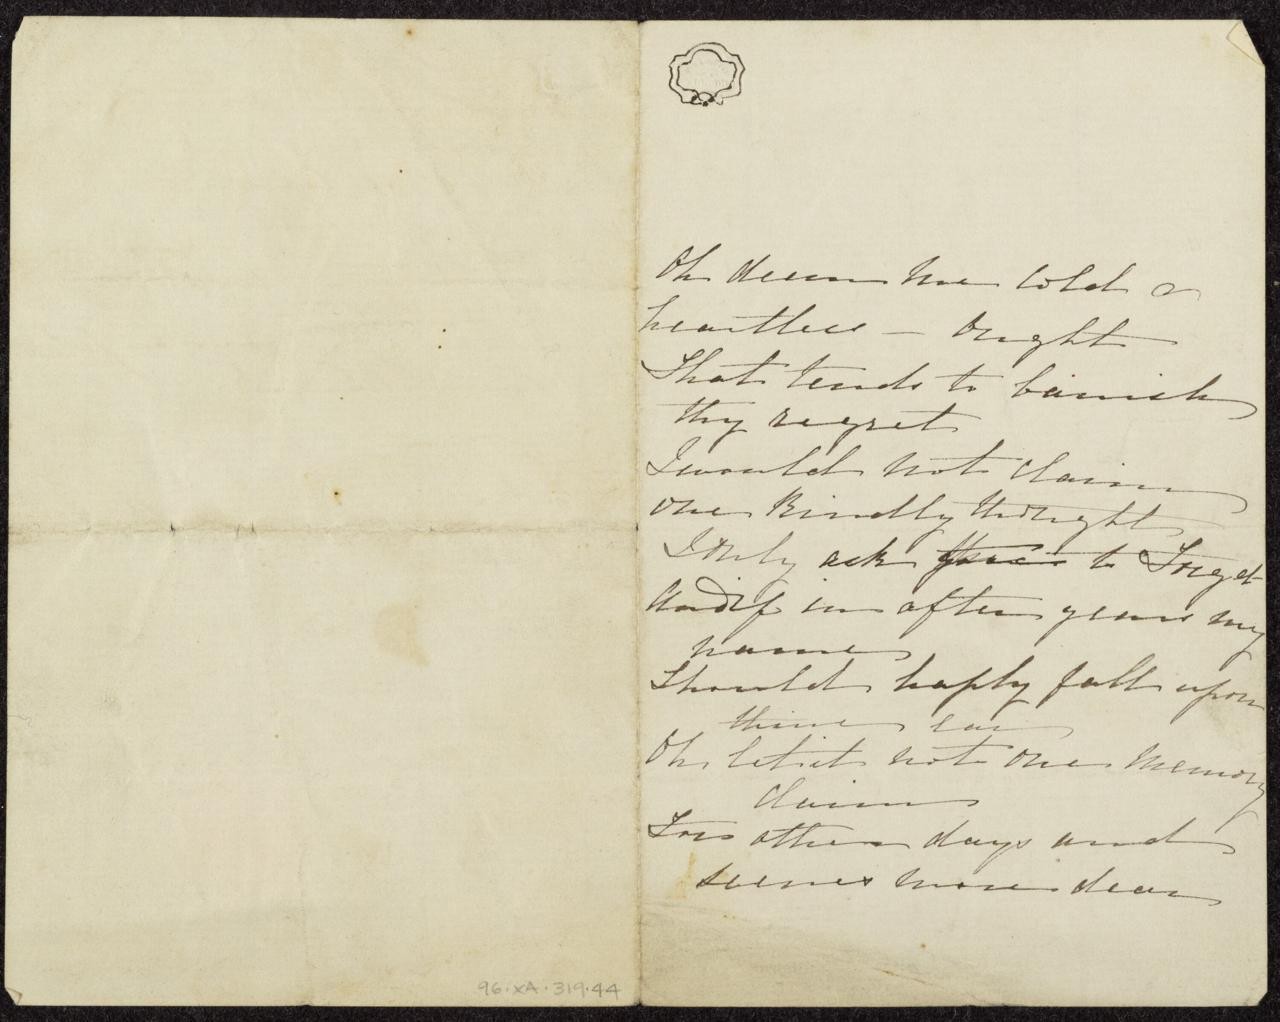 Oh deem me cold &
heartless — Ought
That tends to banish
thy regret
I would not claim
one kindly thought
I only ask to Forget
And if in after years my
name
Should haply fall upon
thine ear
Oh let it not one memory
claim
From other days and
scenes more dear
96.XA.319.44